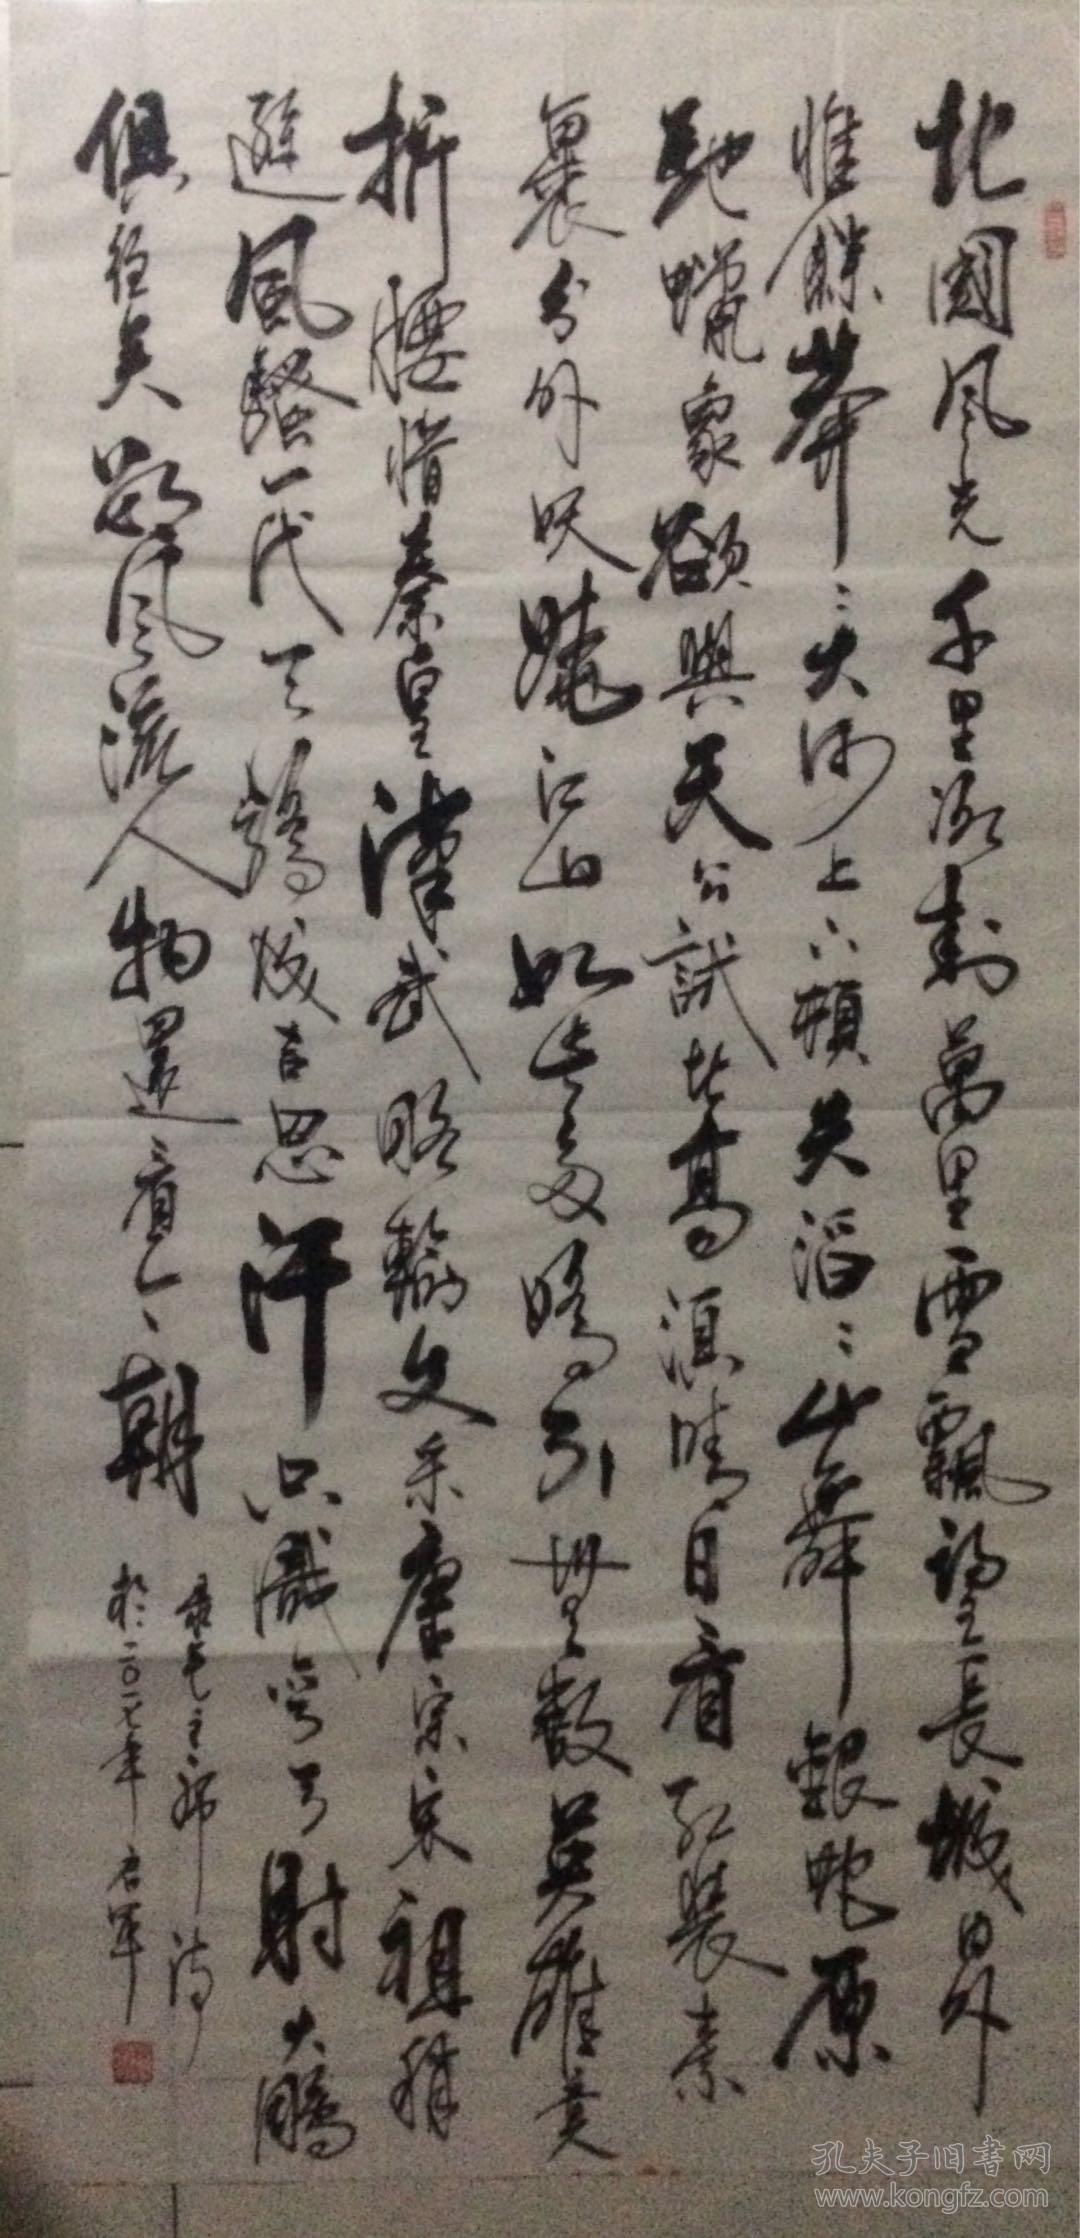 北國风光千里冰封萬里雪飄望長城內外
惟餘莽〻大河上下頓失滔〻山舞銀蛇原
馳蠟象欲與天公試比高須晴日看红裝素
裹分外妖嬈江山如此多嬌引無數英雄竞
折腰惜秦皇漢武略輸文采唐宗宋祖稍
遜風騷一代天驕成吉思汗只識弯弓射大鵰
俱往矣數风流人物還看今朝
录毛主席诗
於二〇一七年
孔夫子旧书网
www.kongfz.com